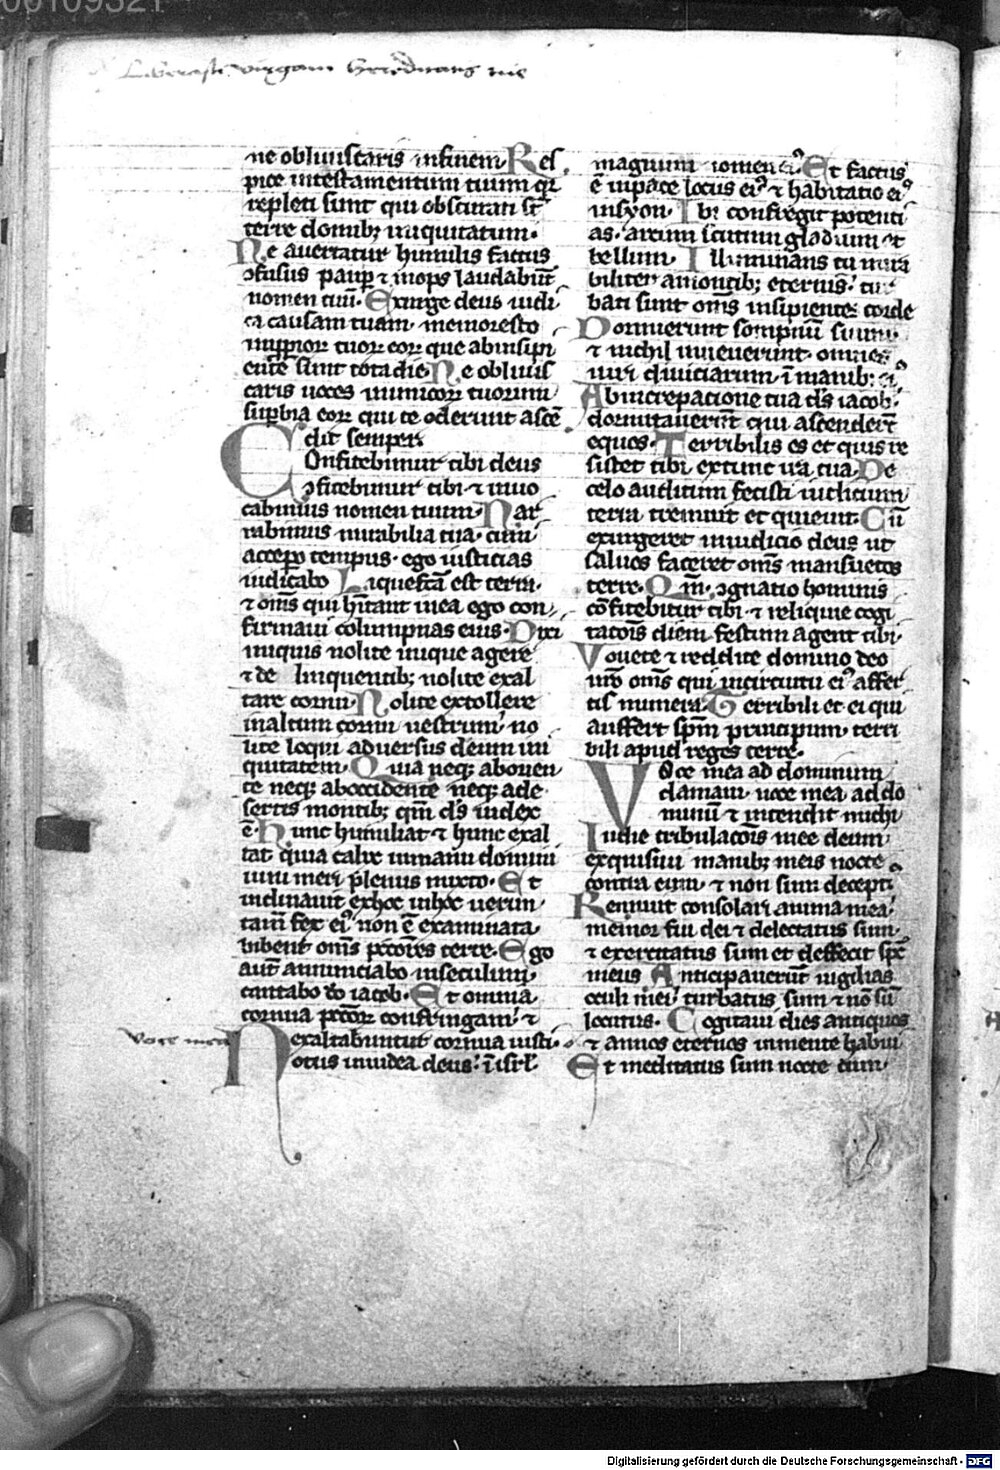 00109321
Liberasti virgam hereditatis tue
ne obliuiscaris infinem. Res
pice intestamentum tuum qr
repleti sunt qui obscurati st̄
terre domibꝫ iniquitatum.
Ne auertatur humilis factus
ↄfusus paup̄ ⁊ inops laudabūt
nomen tuū. Exurge deus iudi
ca causam tuam memoresto
inpp̄rioꝝ tuoꝝ eoꝝ que abinsipi
ente sunt tota die. Ne obliuis
caris uoces inimicoꝝ tuorum
sup̄bia eoꝝ qui te oderunt ascē
dit semper.
Onfitebimur tibi deus
C ↄfitebimur tibi ⁊ inuo
cabimus nomen tuum. Nar
rabimus mirabilia tua. cum
accep̄o tempus. ego iusticias
iudicabo Liquefcā est terra.
⁊ om̄s qui hītant inea ego con
firmaui columpnas eius. Dixi
iniquis nolite inique agere
⁊ de linquentibꝫ nolite exal
tare cornu. Nolite extollere
inaltum cornu uestrum. no
lite loqui aduersus deum ini
quitatem. Quia neqꝫ aborien
te neqꝫ aboccidente neqꝫ ade
sertis montibꝫ qm̄ ds̄ iudex
ē. Hunc humiliat ⁊ hunc exal
tat quia calix inmanu domini
uini meri plenus mixto. Et
inclinauit exhoc inhoc uerun
tam̄ fex eiꝰ non ē exaninata
bibent om̄s pctōres terre. Ego
aut̄ annunciabo inseculum.
cantabo deo iacob. Et omnia
cornua pctōꝝ confringam. ⁊
Voce mea
exaltabuntur cornua iusti.
Notus iniudea deus. ī isrl̄
magnum nomen eiꝰ. Et factus
ē inpace locus eiꝰ ⁊ habitatio eiꝰ
insyon. Ibi confregit potenti
as. arcum scutum gladium et
bellum. Illuminans tu mira
biliter amontibꝫ eternis. tur
bati sunt om̄s insipientes corde
Dormierunt sompnū suum.
⁊ nichil inuenerunt. omnes
uiri diuiciarum ī manibꝫ
Abincrepatione tua ds̄ iacob.
dormitauerūt qui ascenderūt
equos. Terribilis es et quis re
sistet tibi extunc ira tua. De
celo auditum fecisti iudicium
terra tremuit et quieuit. Cū
exurgeret iniudicio deus ut
saluos faceret om̄s mansuetos
terre. Qm̄. ↄgnatio hominis
cōfitebitur tibi. ⁊ reliquie cogi
tatōis diem festum agent tibi.
Vouete ⁊ reddite domino deo
uro om̄s qui incircuitu eiꝰ affer
tis munera. Terribili et ei qui
auffert spm̄ principum. terri
bili apud reges terre.
Voce mea ad dominum
clamaui. uoce mea ad do
minū ⁊ intendit michi
Indie tribulacōis mee deum
exquisiui manibꝫ meis nocte
contra eum. ⁊ non sum deceptꝰ
Rennuit consolari anima mea
memor fui dei ⁊ delectatus sum.
⁊ exercitatus sum et deffecit sp̄c
meus Anticipauerūt uigilias
oculi mei. turbatus sum ⁊ nō sū
locutus. Cogitaui dies antiquos
⁊ annos eternos inmente habui
Et meditatus sum nocte cum
Digitalisierung gefördert durch die Deutsche Forschungsgemeinschaft - DFG